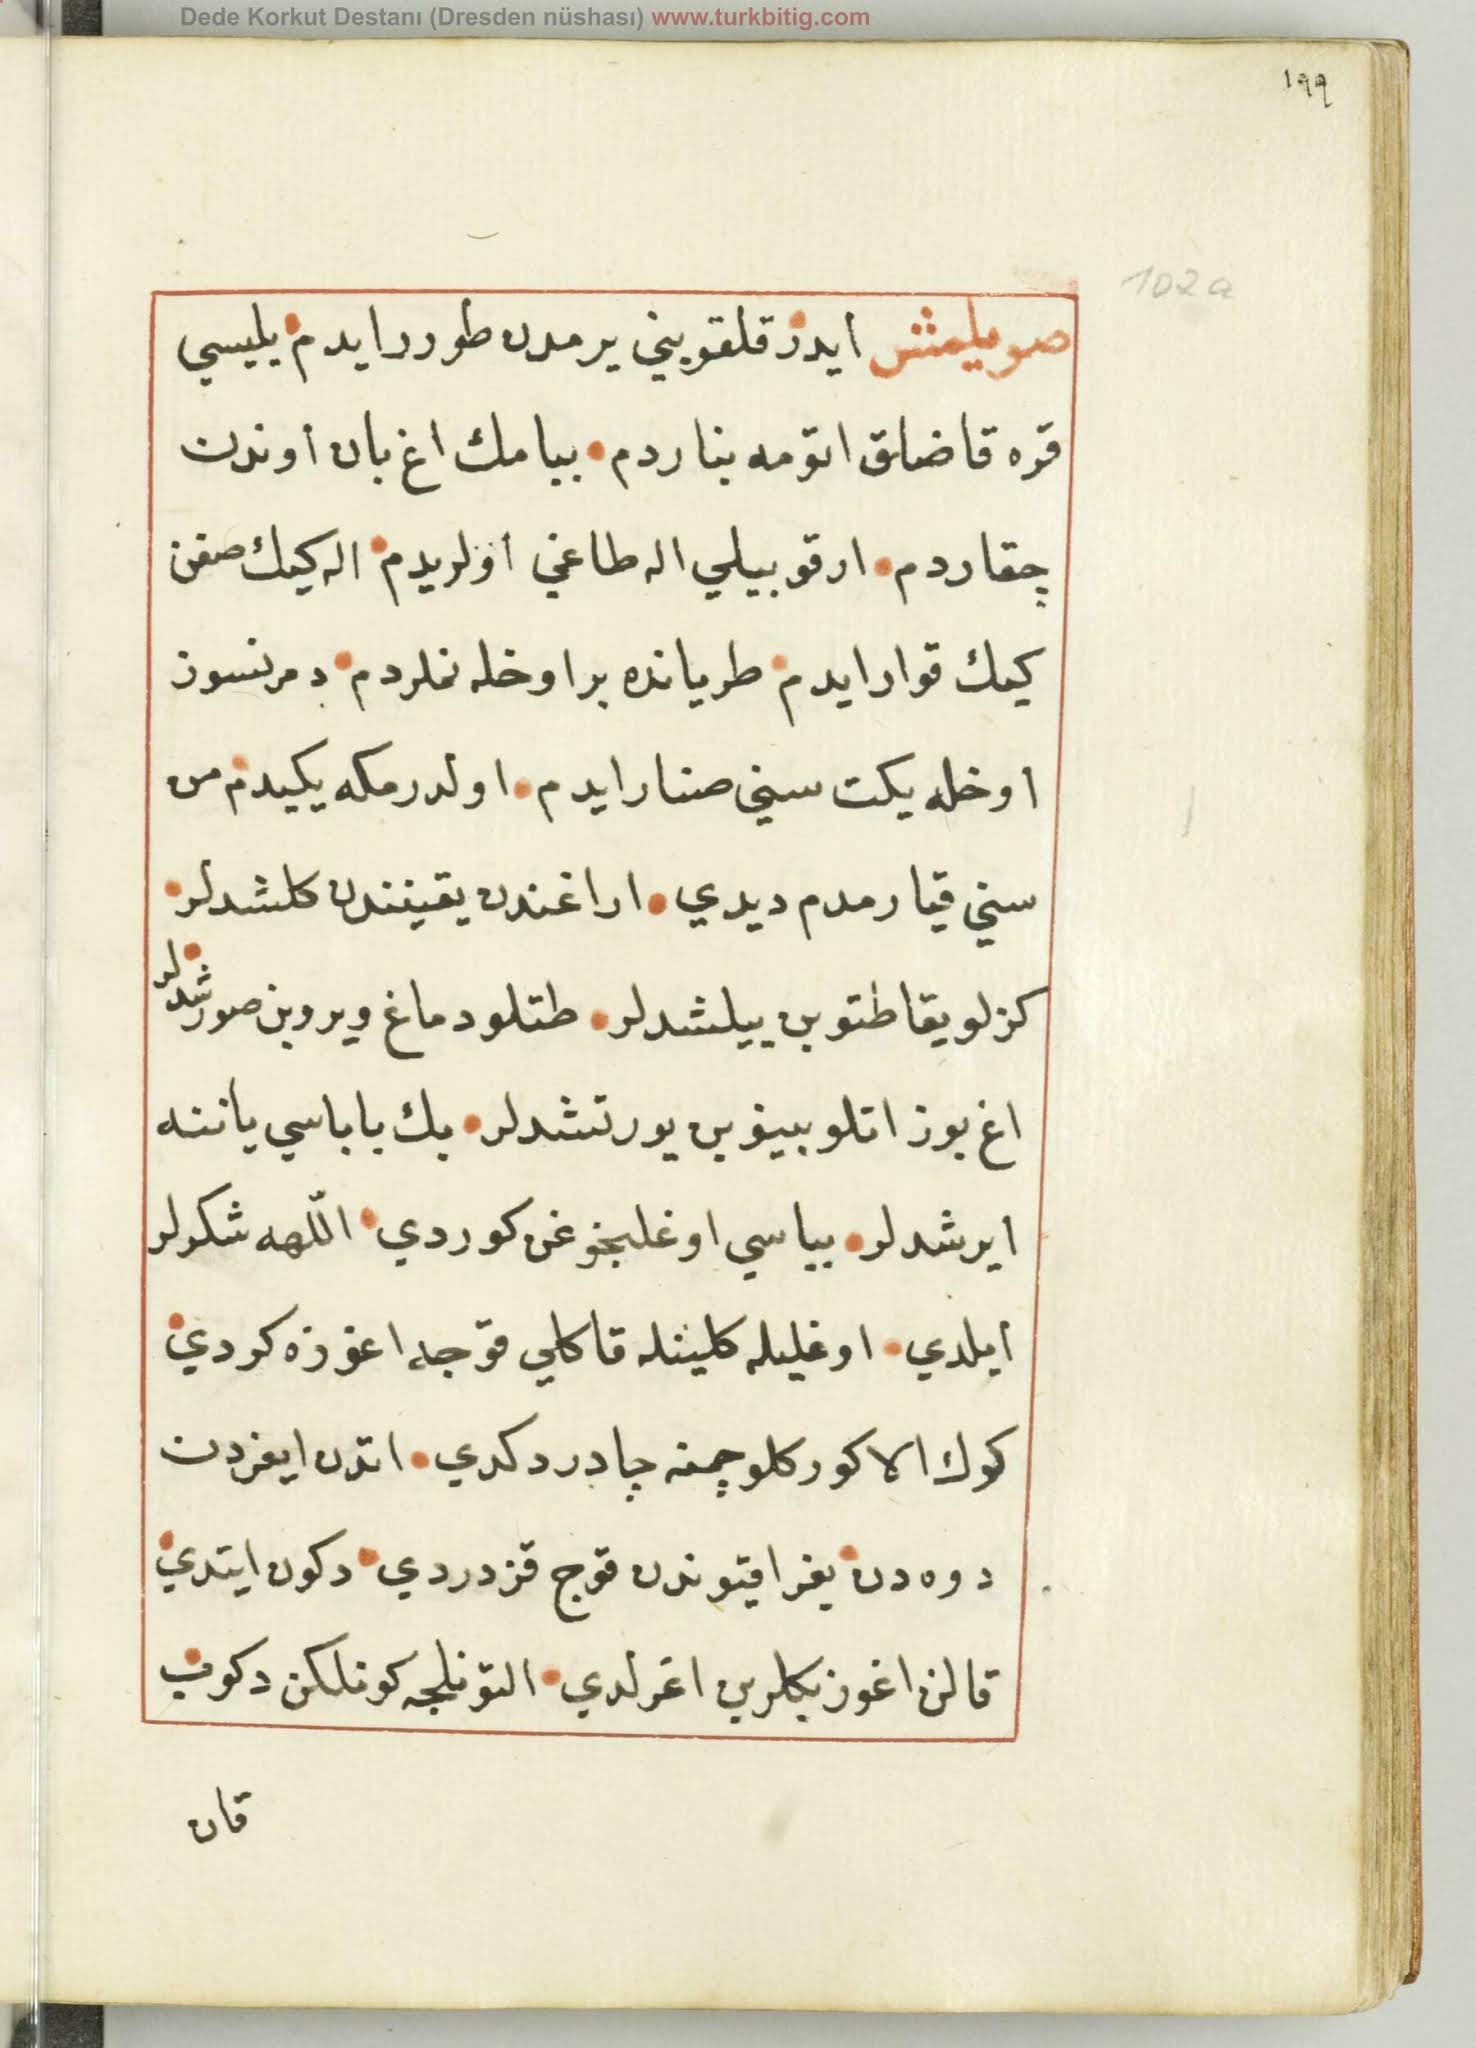 Dede Korkut Destanı (Dresden nüshası) www.turkbitig.com
۱۹۹
102a
صويلمش ايدر قلقوبني يرمدن طورر ايدم يليسي
قره قاضلق اتومه بناردم بيامك اغ بان اوندن
چقاردم ارقو بيلي اله طاغي اولريدم اله كيك صغن
كيك قوار ايدم طريانده بر اوخله نملردم دمرنسوز
اوخله يكت سني صنار ايدم اولدرمكه يكيدم من
سني قيارمدم ديدي اراغندن يقينندن كلشدلر
كزلو يقا طتوبن ييلشدلر طتلو دماغ ويروبن صورشدلر
اغ بوز اتلو بينوبن يورتشدلر بك باباسي ياننه
ايرشدلر بياسي اوغلنجوغن كوردي اللهه شكولر
ايلدي اوغليله كلينله قاكلي قوجه اغوزه كردي
كوك الا كوركلو چمنه چادر دكدي اتدن ايغردن
دوه دن بغرا قيوندن قوج قزدردي دكون ايتدي
قالن اغوز بكلرين اغرلدي التونلجه كونلكن دكوب
قان